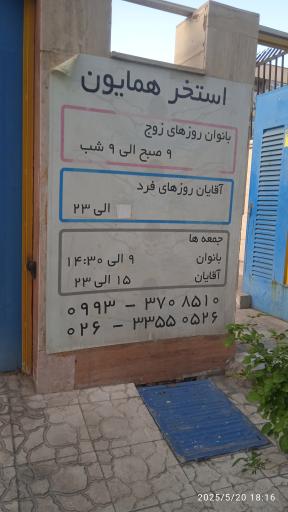 استخر همایون
بانوان روزهای زوج
۹ صبح الی ۹ شب
آقایان روزهای فرد
الی ۲۳
جمعه ها
بانوان ۹ الی ۱۴:۳۰
آقایان ۱۵ الی ۲۳
۰۹۹۳ – ۳۷۰ ۸۵۱۰
۰۲۶ – ۳۳۵۵ ۰۵۲۶
2025/5/20 18:16